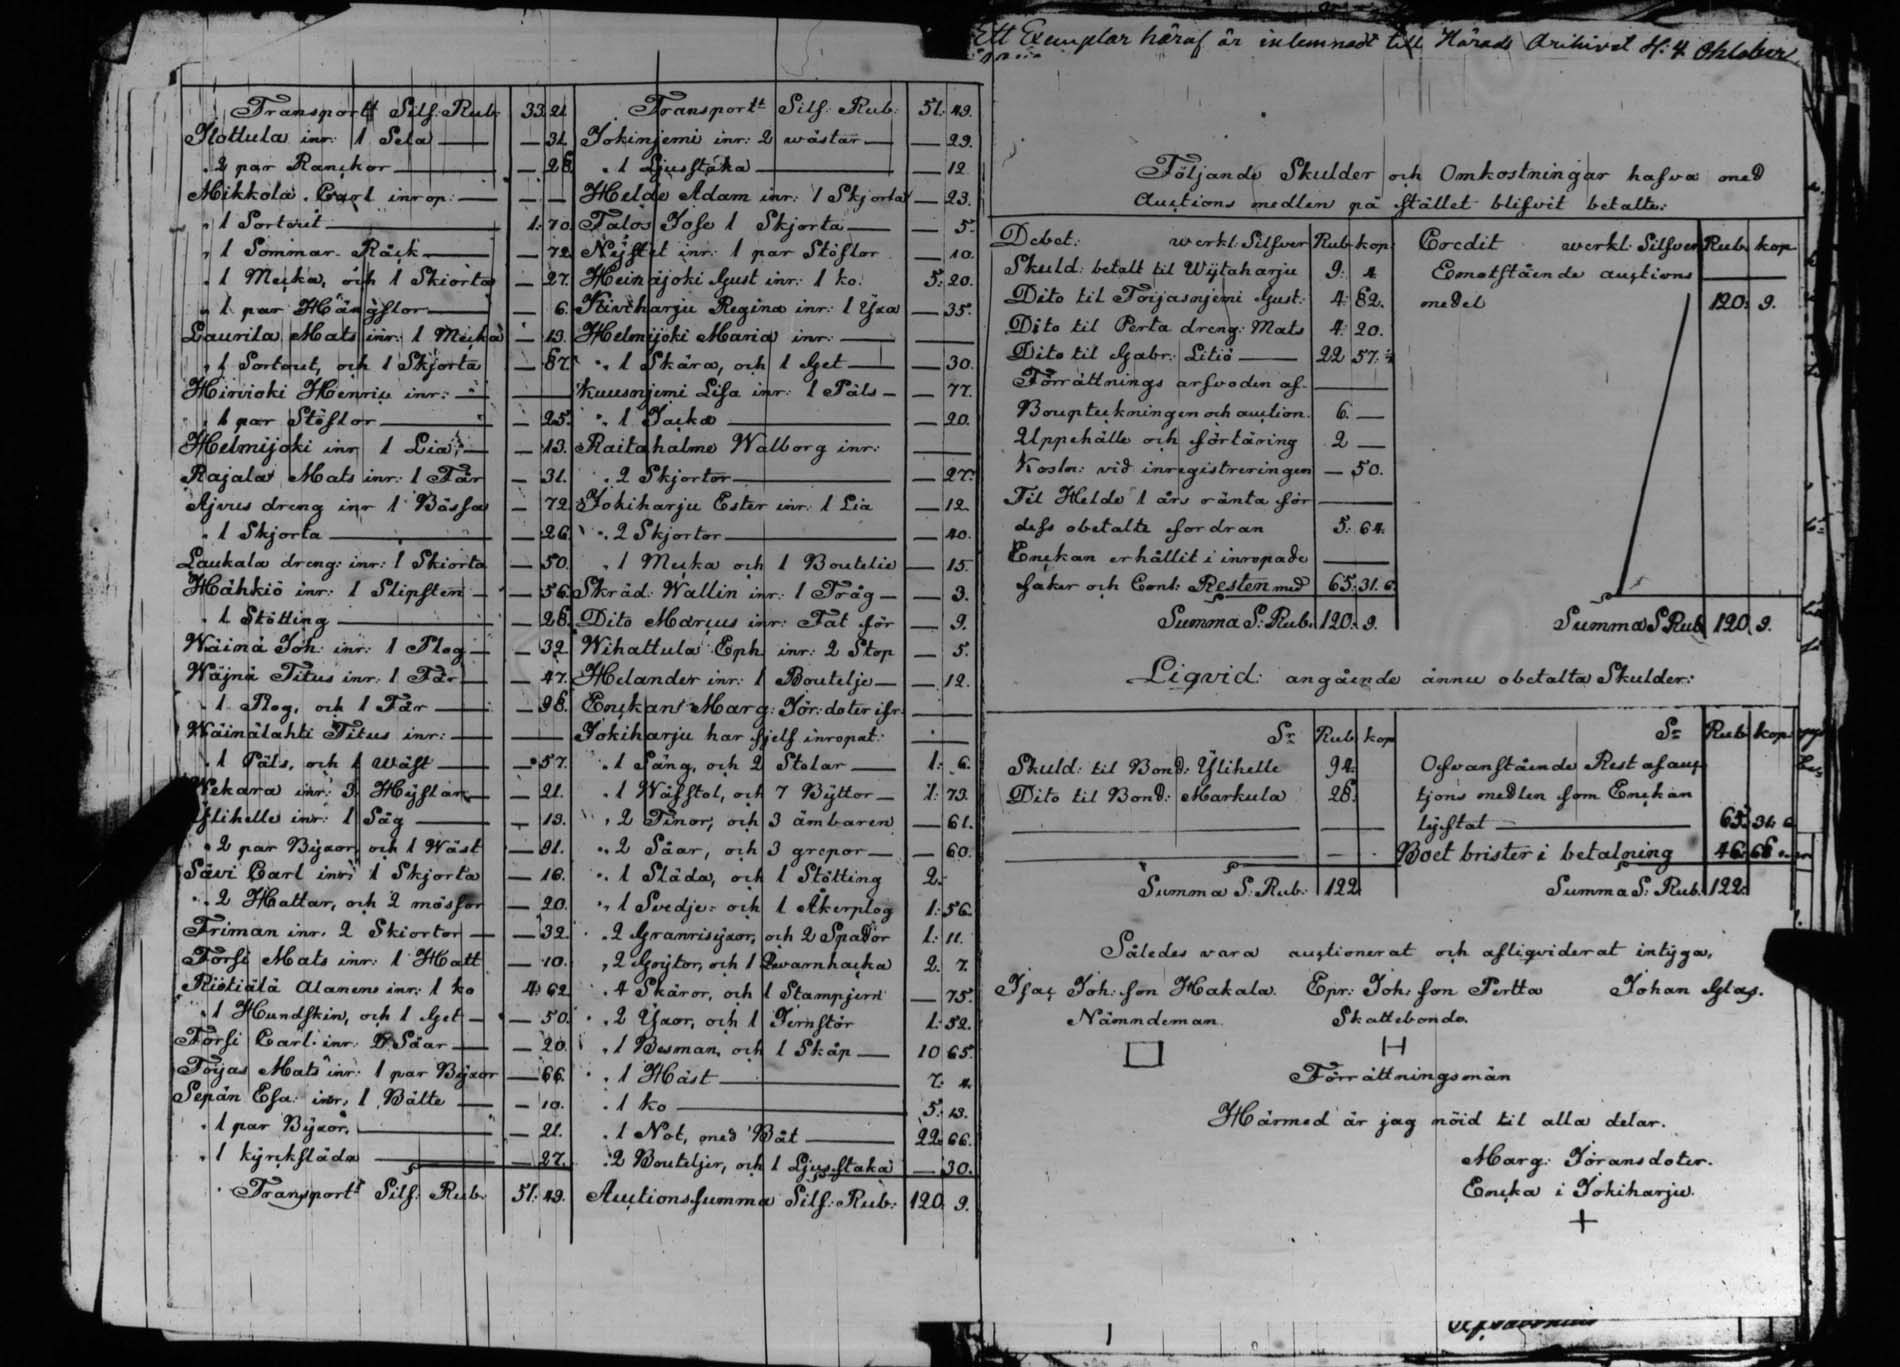 Transport Silf: Rub: 33. 21.
Hottula inr: 1 Sela — 31.
" 2 par Ranckor — 28.
Mikkola Carl inrop: — —
" 1 Sortout 1: 70.
" 1 Sommar Råck — 72.
" 1 Mecka, och 1 Skiorta — 27.
" 1 par Hängslor — 6.
Laurila Mats inr: 1 Mecka — 13.
" 1 Sortout, och 1 Skjorta — 87.
Hirvioki Henric inr:
" 1 par Stöflor — 25.
Helmijoki inr 1 Lia — 13.
Rajala Mats inr: 1 Får — 31.
Ajrus dreng inr 1 Bössa — 72.
" 1 Skjorta — 26.
Laukala dreng: inr: 1 Skiorta — 50.
Hähkiö inr: 1 Slipsten — 56.
" 1 Stötting — 28.
Wäinä Joh: inr: 1 Plog — 32.
Wäjnä Titus inr: 1 Får — 47.
" 1 Plog, och 1 Får — 98.
Wäinälahti Titus inr:
" 1 Päls, och 1 Wäst — 57.
Wekara inr: 3 Hyflar — 21.
Ylihelle inr: 1 Såg — 13.
" 2 par Byxor och 1 Wäst — 91.
Sävi Carl inr: 1 Skjorta — 16.
" 2 Hattar, och 2 mössor — 20.
Friman inr. 2 Skiortor — 32.
Forsi Mats inr: 1 Hatt — 10.
Ristiälä Alanens inr: 1 ko 4: 62.
" 1 Hundskin, och 1 Get — 50.
Forsi Carl: inr: Såar — 20.
Toijas Mats inr: 1 par Byxor — 66.
Sepän Esa: inr: 1 Bälte — 10.
" 1 par Byxor. — 21.
" 1 kyrkslåda — 27.
Transport Silf: Rub: 51: 49.
Transport: Silf: Rub: 51: 49.
Jokinjemi inr: 2 wästar — 29.
" 1 Ljusstaka — 12
Helde Adam inr: 1 Skjorta — 23.
Talos Jose 1 Skjorta — 5.
Nystet inr: 1 par Stöflor — 10.
Heinäjoki Gust inr: 1 ko. 5: 20.
Regina inr: 1 Yxa — 35.
Helmijoki Maria inr:
" 1 Skära, och 1 Get — 30.
Kuusnjemi Lisa inr: 1 Päls — 77.
" 1 Jacka — 20.
Raitahalme Walborg inr:
" 2 Skjortor — 27.
Jokiharju Ester inr: 1 Lia — 12.
" 2 Skjortor — 40.
" 1 Mecka och 1 Boutelie — 15.
Skräd: Wallin inr: 1 Tråg — 3.
Dito Marcus inr: Fat för — 9.
Wihattula Eph inr: 2 Stop — 5.
Helander inr: 1 Boutelje — 12.
Enckan Marg: Jör: doter ifr.
Jokiharju har sjelf inropat:
" 1 Säng, och 2 Stolar 1: 6.
" 1 Wäfstol, och 7 Byttor 1: 73.
" 2 Tinor, och 3 ämbaren — 61.
" 2 Såar, och 3 grepor — 60.
" 1 Släda, och 1 Stötting 2. -
" 1 Svedje: och 1 Åkerplog 1: 56.
" 2 Granrisyxor, och 2 Spador 1: 11.
" 2 Goijtor, och 1 Qwarnhacka 2. 7.
" 4 Skäror, och 1 Stampjern — 75.
" 2 Yxor, och 1 Jernstör 1: 52.
" 1 Besman, och 1 Skåp 10 65.
" 1 Häst 7. 4.
" 1 ko 5: 13.
" 1 Not, med Båt 22: 66.
" 2 Bouteljer, och 1 Ljusstaka — 30.
Auctions summa Silf: Rub: 120. 9.
Ett Exemplar häraf är inlemnadt till Härads Arkivet d: 4 Oktober
Följande Skulder och Omkostningar hafva med
Auctions medlen på stället blifvit betalte:
Debet: werkl: Silfver Rub kop.
Skuld: betalt til Wijtaharju 9: 4
Dito til Toijasnjemi Gust: 4: 82.
Dito til Perta dreng: Mats 4: 20.
Dito til Gabr: Litiö 22 57.
Förrättnings arfvoden af
Bouptekningen och auction. 6. —
Uppehälle och förtäring 2 —
Kostn: vid inregistreringen — 50.
Til Helde 1 års ränta för
dess obetalte fordran 5: 64.
Enckan erhållit i inropade
saker och Cont: Resten med 65: 31. 6.
Summa S: Rub. 120. 9.
Credit werkl: Silfver Rub kop.
Emotstående auctions
medel 120: 9.
Summa S Rub 120. 9.
Liqvid: angående ännu obetalta Skulder:
Sr Rub kop
Skuld: til Bond: Ylihelle 94.
Dito til Bond: Markula 28.
Summa S: Rub: 122
Sr Rub kop.
Ofvanstående Rest af auc
tjons medlen som Enckan
lyftat 65: 31. 6
Boet brister i betalning 46: 68.
Summa S: Rub. 122.
Således vara auctionerat och afliqviderat intyga,
Isac Joh: son Hakala. Epr: Joh: son Pertta Johan Glas.
Nämndeman. Skattebonde.
Förrättningsmän
Härmed är jag nöid til alla delar.
Marg: Jöransdoter.
Encka i Jokiharju.